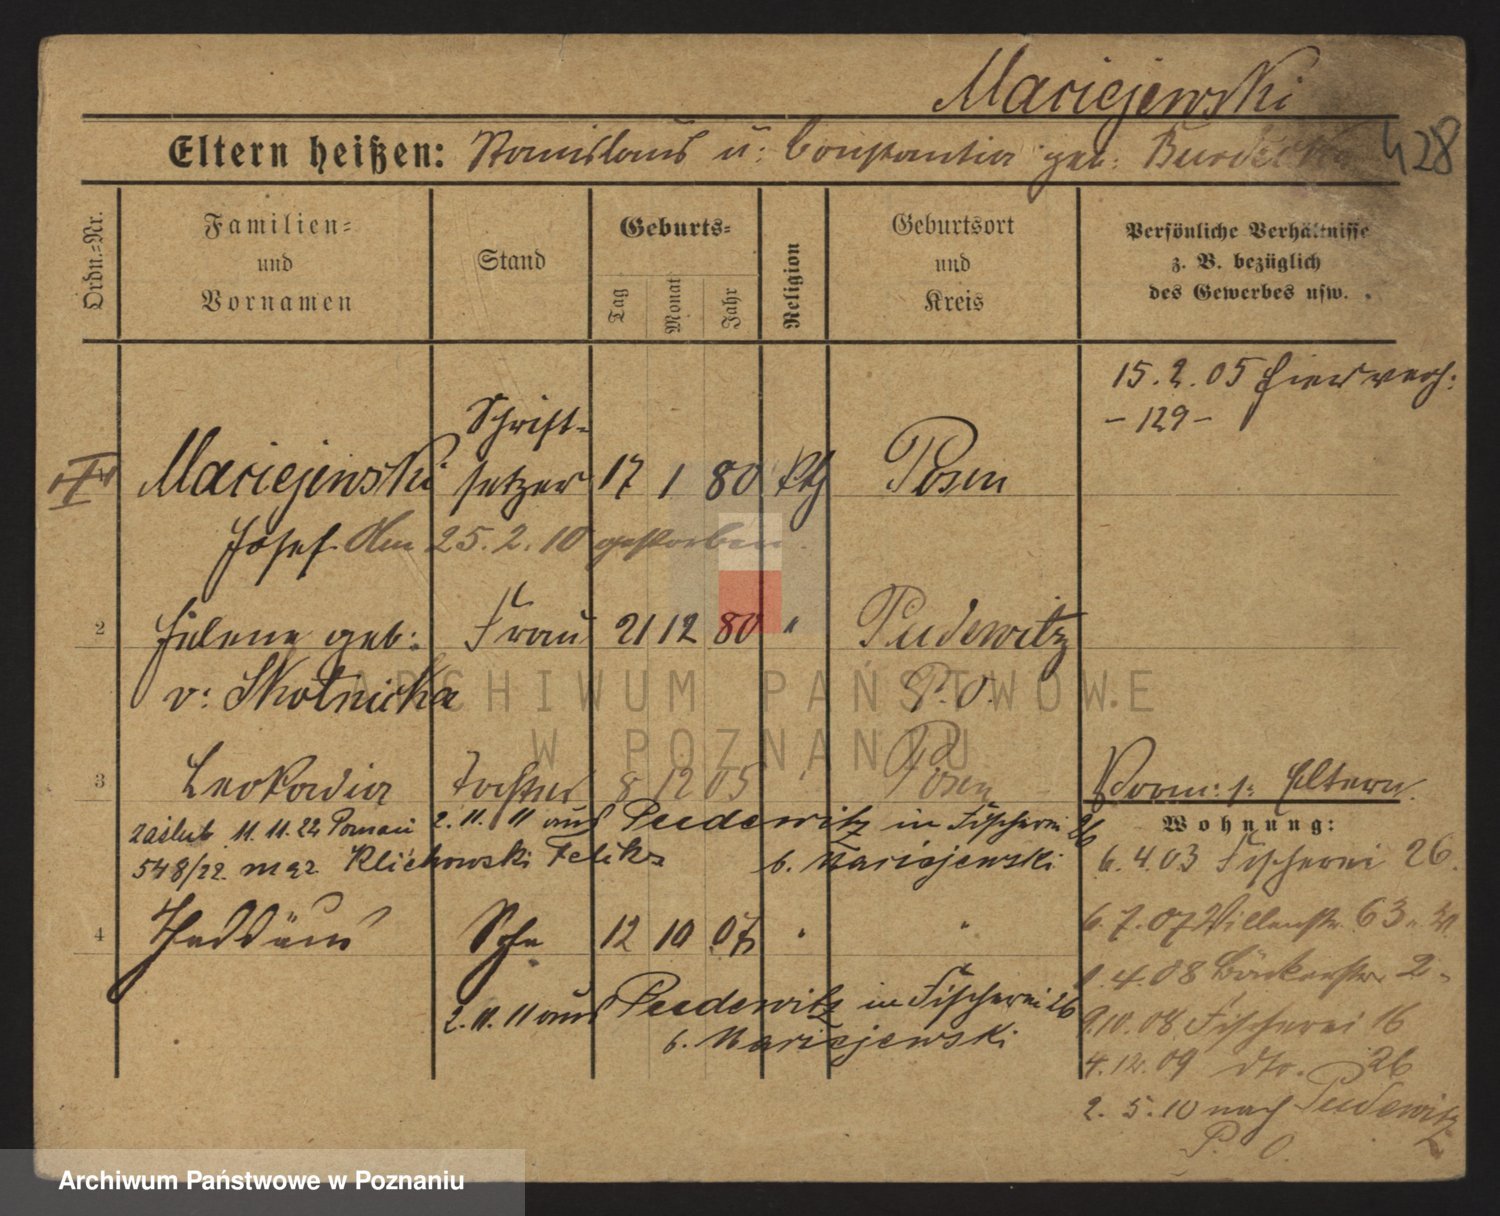 Maciejewski
Eltern heißen: Stanislaus u: Constantia geb: 428
Ordn.-Nr.
Familien-
und
Vornamen
Stand
Geburts-
Tag
Monat
Jahr
Religion
Geburtsort
und
Kreis
Persönliche Verhältnisse
z. B. bezüglich
des Gewerbes usw.
15.2.05 hier verh:
- 129 -
Schrift-
Maciejewski setzer 17 1 80 kth Posen
Josef. Am 25.2.10 gestorben.
2 Helene geb: Frau 21 12 80 " Pudewitz
v: Skotnicka P. O.
3 Leokadia Tochter 8 12 05 " Posen Vorm: s: Eltern.
zaślub 11.11.22 Poznań 2.11.11 aus Pudewitz in Fischerei 26
548/22 mąż Klichowski Feliks b. Maciejewski
Wohnung:
6.4.03 Fischerei 26.
4 Thaddäus Sohn 12 10 07 " "
2.11.11 aus Pudewitz in Fischerei 26
b. Maciejewski
6.7.07 Villenstr. 63
1.4.08 Bäckerstr. 2
9.10.08 Fischerei 16
4.12.09 dto. 26
2.5.10 nach Pudewitz
P. O.
ARCHIWUM PAŃSTWOWE
W POZNANIU
Archiwum Państwowe w Poznaniu